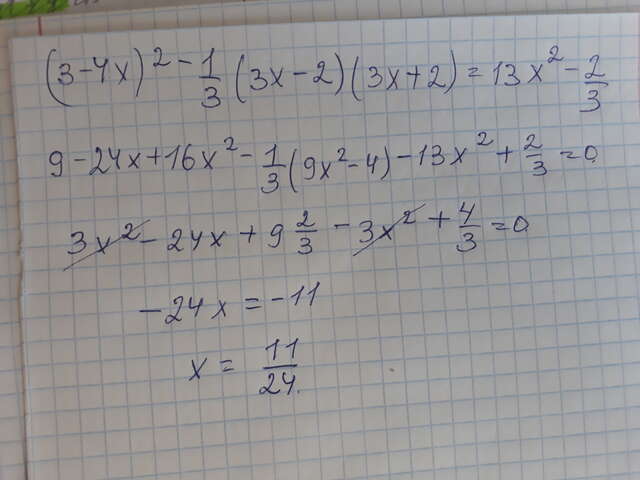 (3-4x)² - 1/3 (3x-2)(3x+2) = 13x² - 2/3
9-24x+16x² - 1/3 (9x²-4) - 13x² + 2/3 = 0
3x² - 24x + 9 2/3 - 3x² + 4/3 = 0
-24x = -11
x = 11/24.